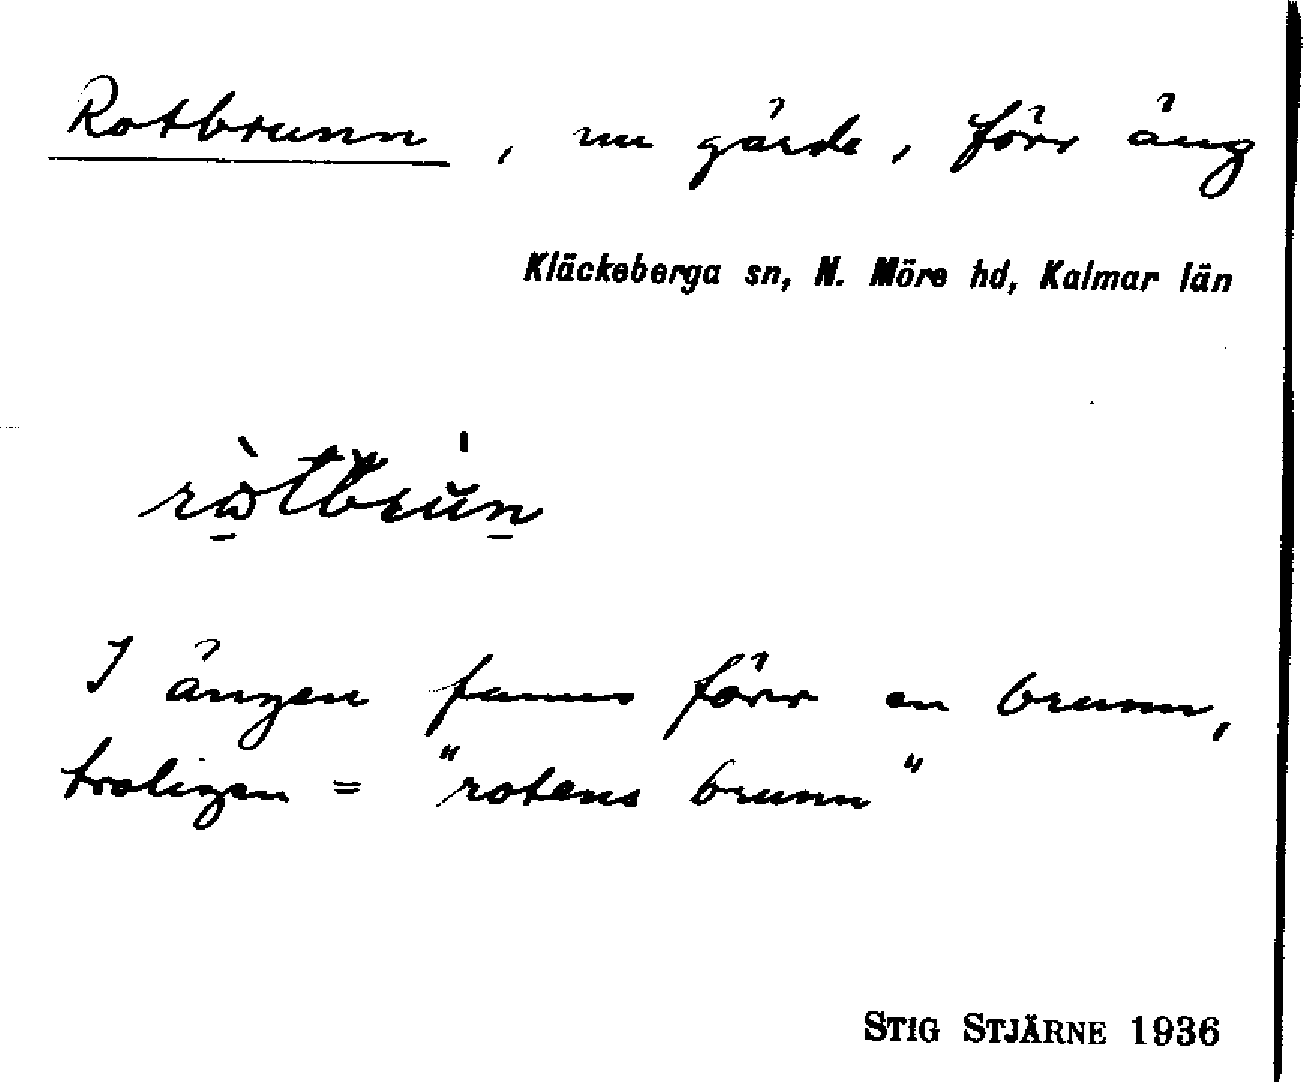 Rotbrunn, nu gärde, förr äng
Kläckeberga sn, N. Möre hd, Kalmar län
I ängen fanns förr en brunn,
troligen = "rotens brunn"
STIG STJÄRNE 1936